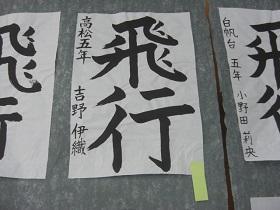 飛行
高松五年
吉野 伊織
白帆台 五年 小野田 莉央